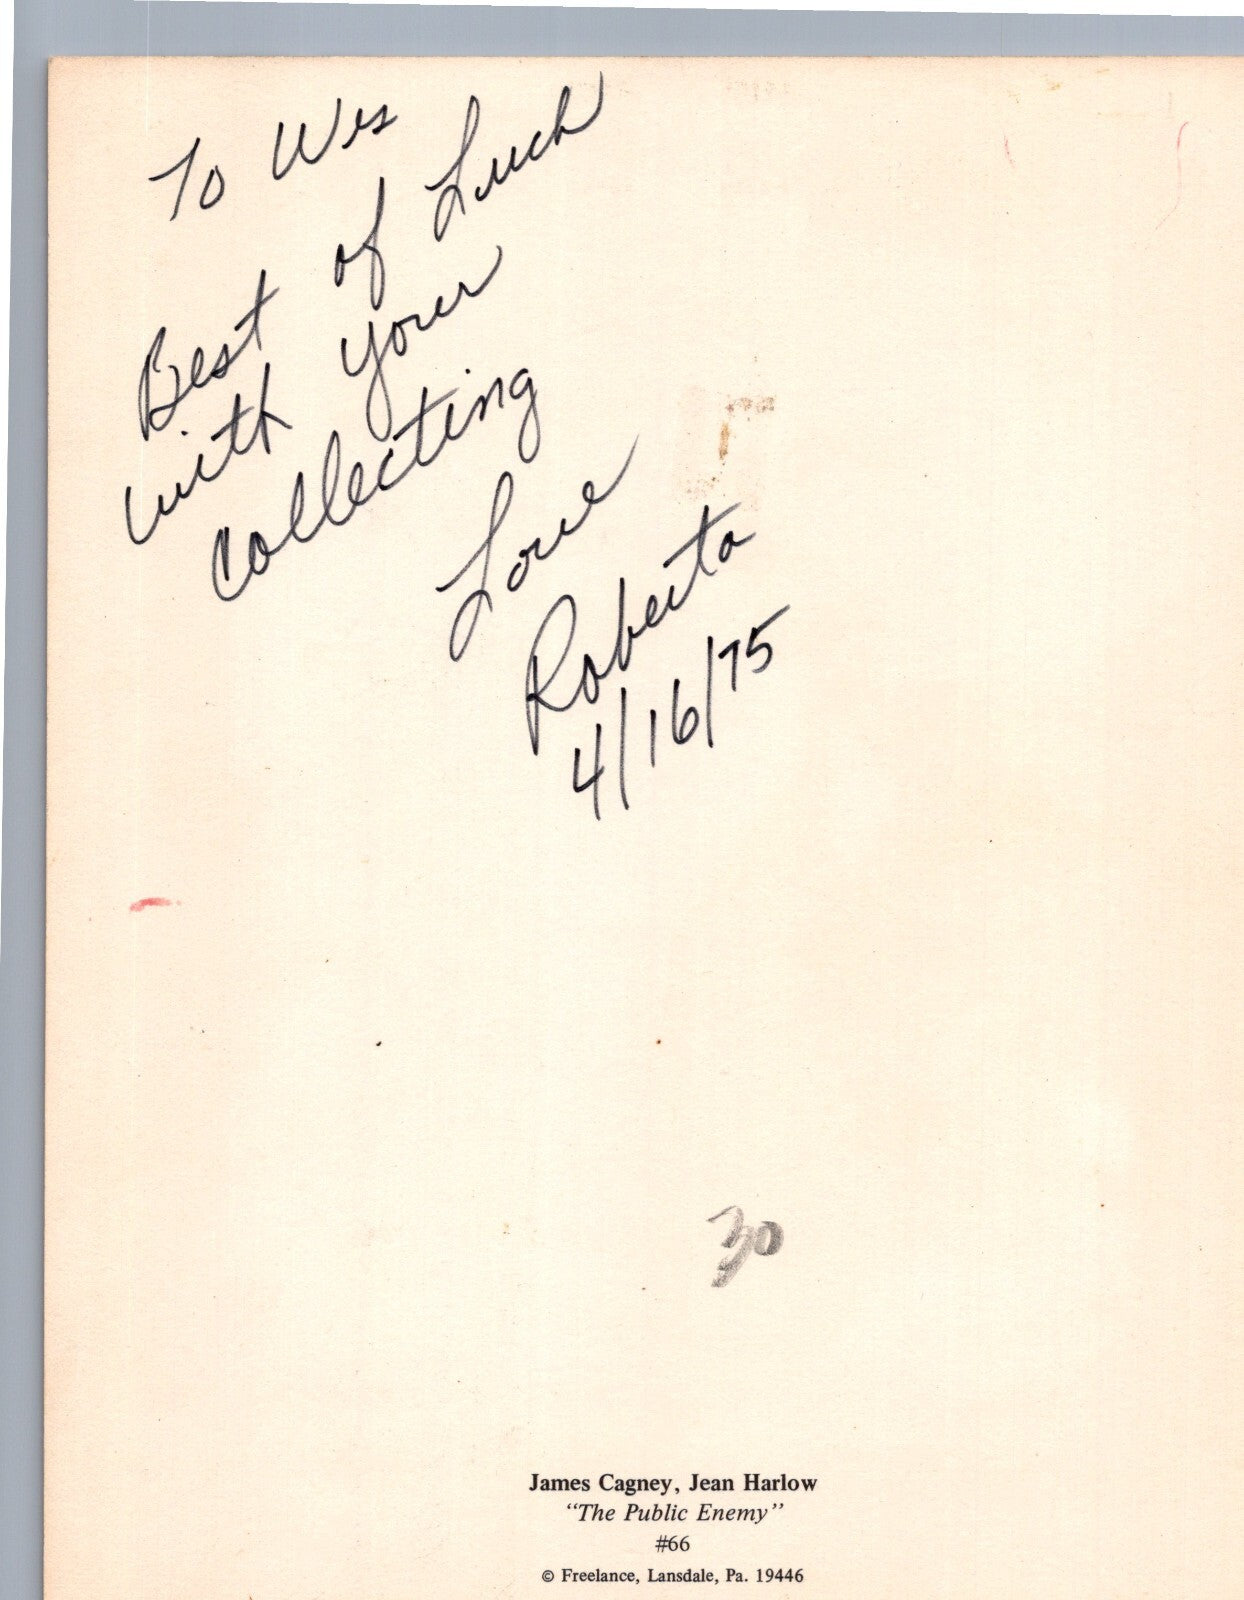 To Wes
Best of Luck
with your
Collecting
Love
Roberta
4/16/75
30
James Cagney, Jean Harlow
“The Public Enemy”
#66
© Freelance, Lansdale, Pa. 19446